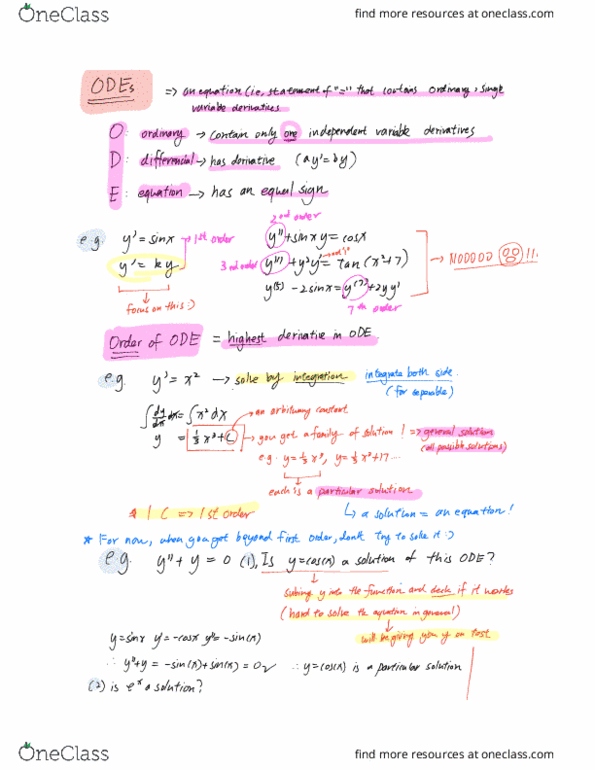 OneClass
find more resources at oneclass.com
ODEs => an equation (i.e. statement of "=" that contains ordinary, single
variable derivatives
O: ordinary → contain only one independent variable derivatives
D: differential → has derivative (ay'=by)
E: equation → has an equal sign
2nd order
e.g. y' = sinx → 1st order y'' + sinxy = cosx
y' = ky 3rd order y''' + y²y' = Tan(x²+7) → NOOOOO !!.
focus on this :) y⁽⁵⁾ - 2sinx = y⁽⁷⁾ + 2yy'
7th order
Order of ODE = highest derivative in ODE.
e.g. y' = x² → solve by integration integrate both side.
(for separable)
∫ dy/dx dx = ∫ x² dx an arbitrary constant
y = ⅓x³ + C → you get a family of solution! => general solution
(all possible solutions)
e.g. y = ⅓x³, y = ⅓x³ + 17 ....
each is a particular solution
* 1 C => 1st order ↳ a solution = an equation!
* For now, when you get beyond first order, don't try to solve it :)
e.g. y'' + y = 0 (1), Is y=cos(x) a solution of this ODE?
subing y into the function and check if it works
(hard to solve the equation in general)
will be giving you y on test
y=sinx y'=-cosx y''=-sin(x)
∴ y''+y = -sin(x)+sin(x) = 0 ∴ y=cos(x) is a particular solution
(2) is eˣ a solution?
OneClass
find more resources at oneclass.com